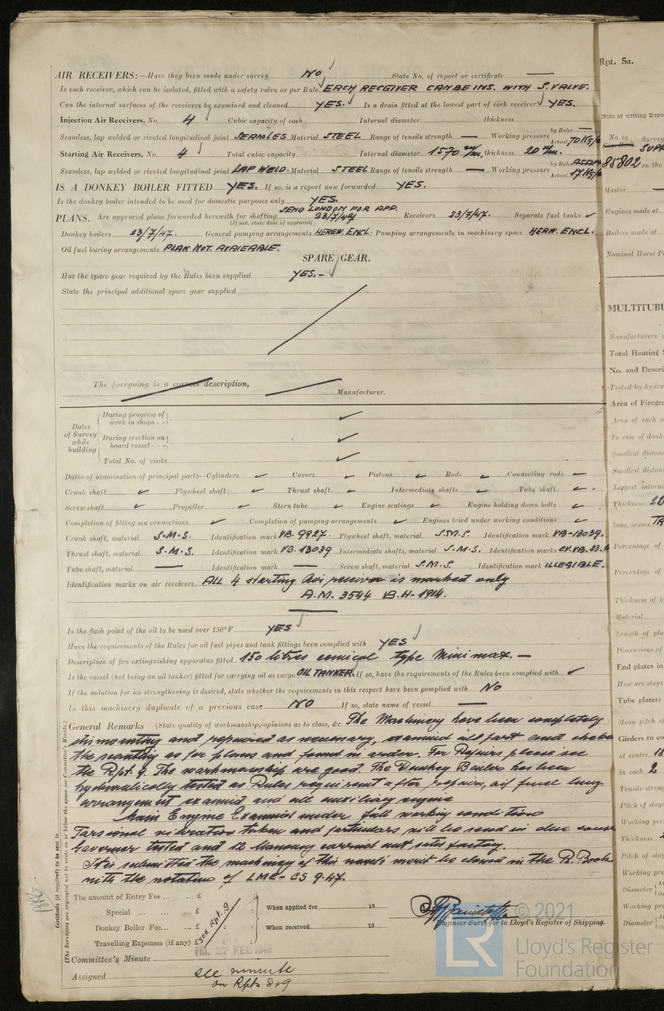 AIR RECEIVERS:—Have they been made under survey NO State No. of report or certificate —
Is each receiver, which can be isolated, fitted with a safety valve as per Rule EACH RECEIVER CAN BE INS. WITH S. VALVE.
Can the internal surfaces of the receivers be examined and cleaned YES. Is a drain fitted at the lowest part of each receiver YES.
Injection Air Receivers, No. 4 Cubic capacity of each Internal diameter thickness
Seamless, lap welded or riveted longitudinal joint SEAMLES Material STEEL Range of tensile strength — Working pressure by Rules — Actual
Starting Air Receivers, No. 4 Total cubic capacity Internal diameter 1570 m/m, thickness 20 m/m.
Seamless, lap welded or riveted longitudinal joint LAP WELD. Material STEEL Range of tensile strength — Working pressure by Rules Actual
IS A DONKEY BOILER FITTED YES. If so, is a report now forwarded YES.
Is the donkey boiler intended to be used for domestic purposes only YES.
SEND LONDON FOR APP.
PLANS. Are approved plans forwarded herewith for shafting 23/7/47 Receivers 23/7/47. Separate fuel tanks
(If not, state date of approval)
Donkey boilers 23/7/47. General pumping arrangements HEREW. ENCL. Pumping arrangements in machinery space HERW. ENCL.
Oil fuel burning arrangements PLAN NOT AVAIEABLE.
SPARE GEAR.
Has the spare gear required by the Rules been supplied YES.-
State the principal additional spare gear supplied
The foregoing is a correct description,
Manufacturer.
Dates of Survey while building
During progress of work in shops - -
During erection on board vessel - - -
Total No. of visits
Dates of examination of principal parts—Cylinders Covers Pistons Rods Connecting rods
Crank shaft Flywheel shaft Thrust shaft Intermediate shafts Tube shaft
Screw shaft Propeller Stern tube Engine seatings Engine holding down bolts
Completion of fitting sea connections Completion of pumping arrangements Engines tried under working conditions
Crank shaft, material S.M.S. Identification mark VB. 9927 Flywheel shaft, material S.M.S. Identification mark VB-13039.
Thrust shaft, material S.M.S. Identification mark VB. 13039 Intermediate shafts, material S.M.S. Identification marks
Tube shaft, material — Identification mark — Screw shaft, material S.M.S. Identification mark ILLEGIBLE.
Identification marks on air receivers ALL 4 starting Air receiver is marked only
A.M. 3544 B.H-1914.
Is the flash point of the oil to be used over 150°F YES
Have the requirements of the Rules for oil fuel pipes and tank fittings been complied with YES
Description of fire extinguishing apparatus fitted 150 litres conical type Minimax. —
Is the vessel (not being an oil tanker) fitted for carrying oil as cargo OIL TANKER. If so, have the requirements of the Rules been complied with
If the notation for ice strengthening is desired, state whether the requirements in this respect have been complied with NO
Is this machinery duplicate of a previous case NO If so, state name of vessel —
General Remarks (State quality of workmanship, opinions as to class, &c. The Machinery have been completely
dismounting and repaired as necessary, examined all part and
the scantling as for plans and found in order. For Repairs please see
the Rpt. 9. The workmanship are good. The Donkey Boiler has been
hydraulically tested as Rules requirement after repairs, oil fuel burg
arrangement examind and all auxiliary engine
Main Engine Examined under full working condition
Torsional vibration taken and particulars will be send in due course
Governor tested and
It is submitted the machinery of this vessel's merit be classed in the R. Book
with the notation of LMC-CS 9.47.
Certificate (if required) to be sent to
(The Surveyors are requested not to write on or below the space for Committee's Minute.)
The amount of Entry Fee ... £
Special ... £
Donkey Boiler Fee ... £
Travelling Expenses (if any) £
see Rpt. 9
When applied for 19
When received 19
Engineer Surveyor to Lloyd's Register of Shipping.
Committee's Minute FRI. 27 FEB 1948
Assigned see minute
on Rpts 8 & 9
© 2021
LR
Lloyd's Register
Foundation
Rpt. 5a.
Date of writing Repor
No. in
85802 on the
Master
Engines made at
Boilers made at
Nominal Horse P
MULTITUBU
Manufacturers
Total Heating
No. and Descri
Tested by hydra
Area of Firegra
Area of each
In case of donk
Smallest distan
Smallest distan
Largest intern
Thickness
long. seams
Percentage of
Percentage of
Thickness of b
Material
Length of pla
Dimensions of
End plates in
How are stays
Tube plates:
Mean pitch of
Girders to co
at centre
in each 2
Tensile streng
Pitch of stays
Working pre
Thickness
Pitch of stay
Working pre
Diameter
Working pre
Diameter